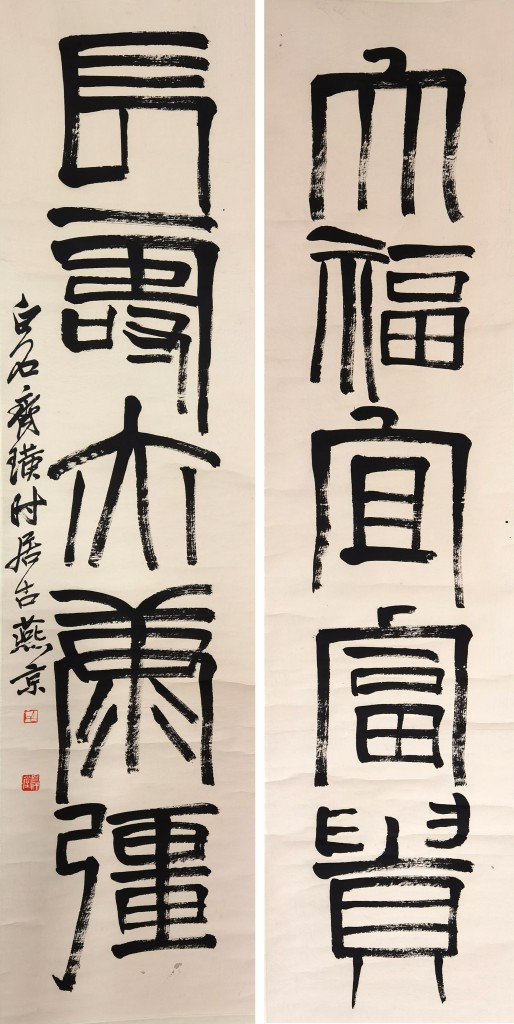 大福宜富貴
長壽亦康彊
白石齊璜時居古燕京